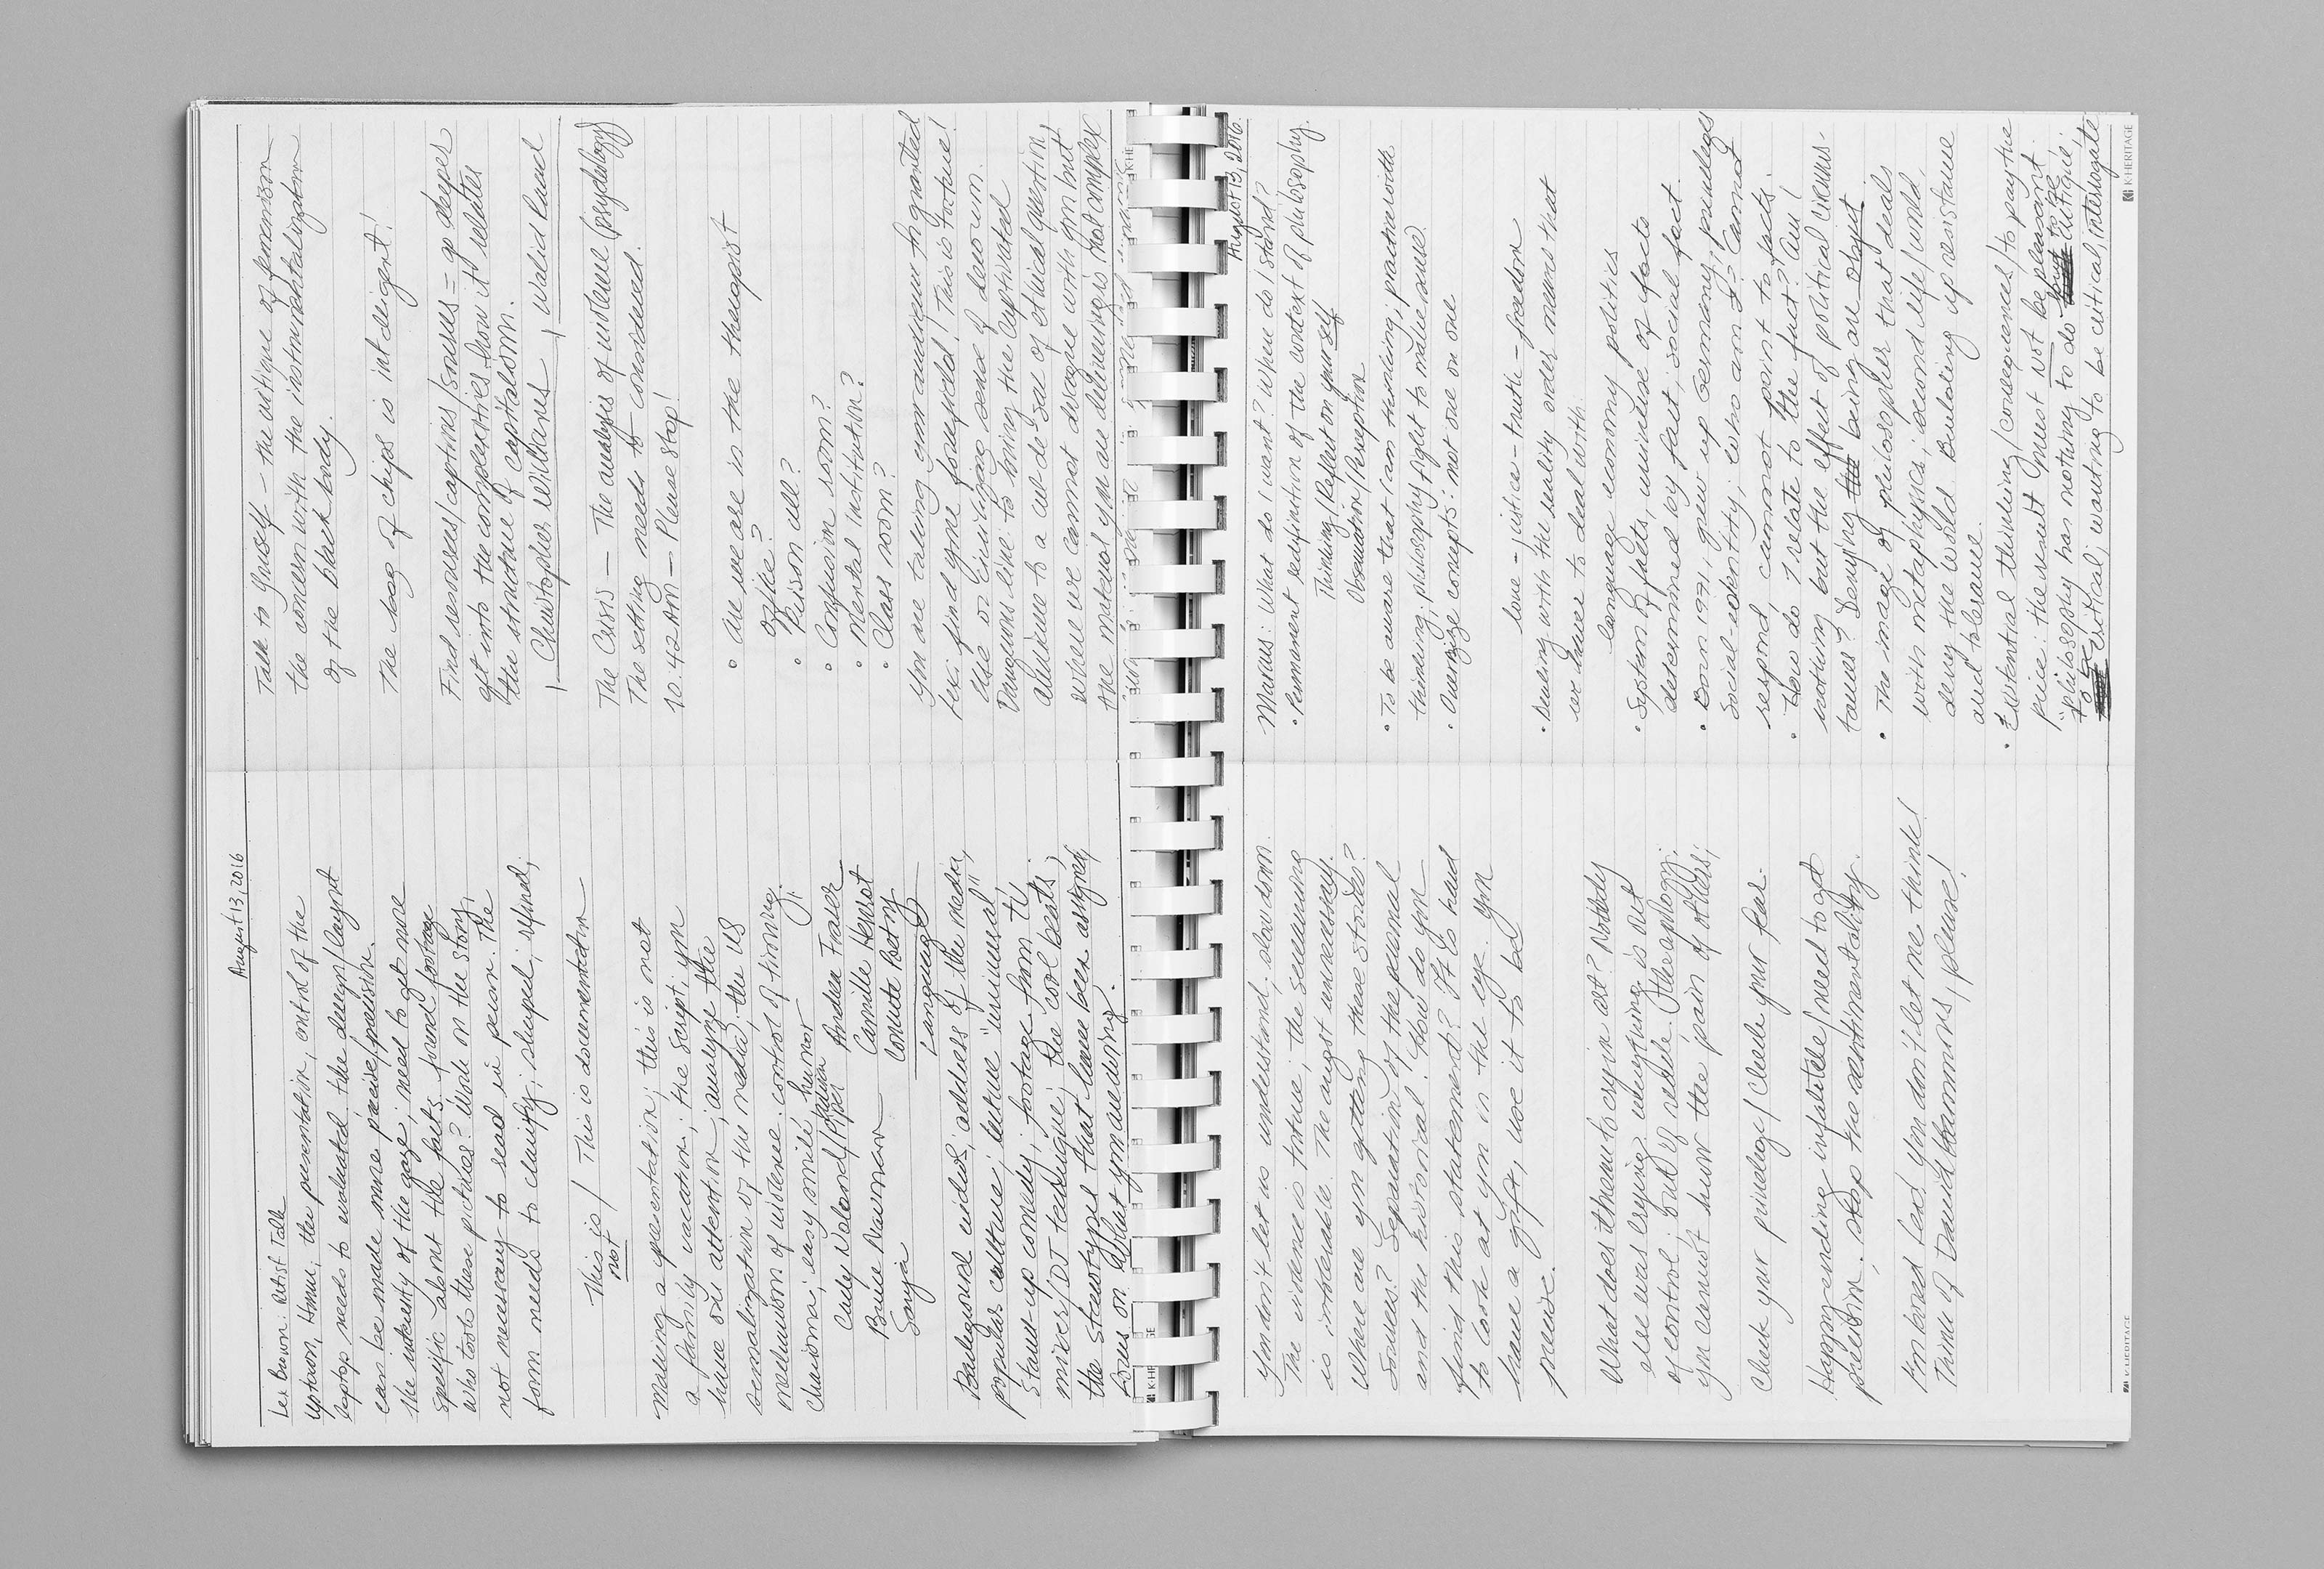 August 13, 2016
Lex Brown: Artist Talk
uptown, Humn; the presentation, control of the
laptop needs to evaluated. the design/layout
can be made more precise/precision.
the intensity of the gaze; need to get more
specific about the facts. found footage
who took these pictures? Work on the story,
not necessary to read in person. The
form needs to clarify; shaped; refined;
This is / This is documentation
not
making a presentation; this is not
a family vacation; the script; you
have our attention; analyze the
sensalization of the media; the US
mechanism of violence. control of timing;
charisma; easy smile; humor
Cauly Noland/Pope Andrea Fraser
Bruce Nauman Camille Henrot
Sonya Cornute Botny
Language
Background video; address of the media,
popular culture; intrue "universal"
Stand-up comedy; footage from TV,
mixer/DJ technique; the cool beats;
the stereotypes that have been assigned,
Focus on what you are doing.
Talk to yourself — the critique of feminism
the concern with the instrumentalization
of the black body.
The bag of chips is intelligent!
Find resources/captions/sources = go deeper
get into the complexities, how it relates
the structure of capitalism.
Christopher Williams, Walid Raad
The Crisis — The analysis of violence (psychology)
The setting needs to considered.
10:42 AM — Please stop!
• Are we are in the therapist
office?
• Prison cell?
• Confession room?
• Mental institution?
• Class room?
You are taking your audience for granted
Lex: find your foreyield! This is torture!
Use or Enisting sense of decorum.
Dangerous line to bring the captivated
audience to a cul-de-sac of ethical question,
where we cannot disagree with you but
the material you are delivering is not complex
You don't let us understand, slow down.
The violence is torture; the screaming
is intolerable. The angst unnecessary.
Where are you getting these stories?
Sources? Separation of the personal
and the historical. How do you
find this statement? It is hard
to look at you in the eye. You
have a gift, use it to be
precise.
What does it mean to cry in art? Nobody
else was crying. everything is out
of control; out of reach. (the apology.
you cannot know the pain of others;
Check your privilege / Check your fear.
Happy-ending infatile/need to get
precision. Stop the sentimentality.
I'm bored Lex! You don't let me think!
Think of David Hammons, please!
August 13, 2016.
Marcus: What do I want? Where do I stand?
• Permanent redefinition of the context of philosophy.
Thinking/Reflect on yourself
Observation/Perception
• To be aware that I am thinking; practices with
thinking; philosophy fight to make sense.
• Overrize concepts: not one on one
love – justice – truth – freedom
• Dealing with the reality order means that
we have to deal with.
language economy politics
• System of facts, universe of facts
determined by fact; social fact.
• Born in 1971, grew up Germany; privileges
social-identity; who am I? Cannot
respond, cannot point to facts.
• How do I relate to the fact? Am I
nothing but the effect of political circums-
tances? Denying being an object
• The image of philosopher that deals
with metaphysics; second life/world.
deny the world. Building up resistance
and tolerance.
• Existential thinking/consequences/to pay the
price: the result must not be pleasant.
"philosophy has nothing to do to be critique.
to be critical; wanting to be critical, interrogate
K·HERITAGE